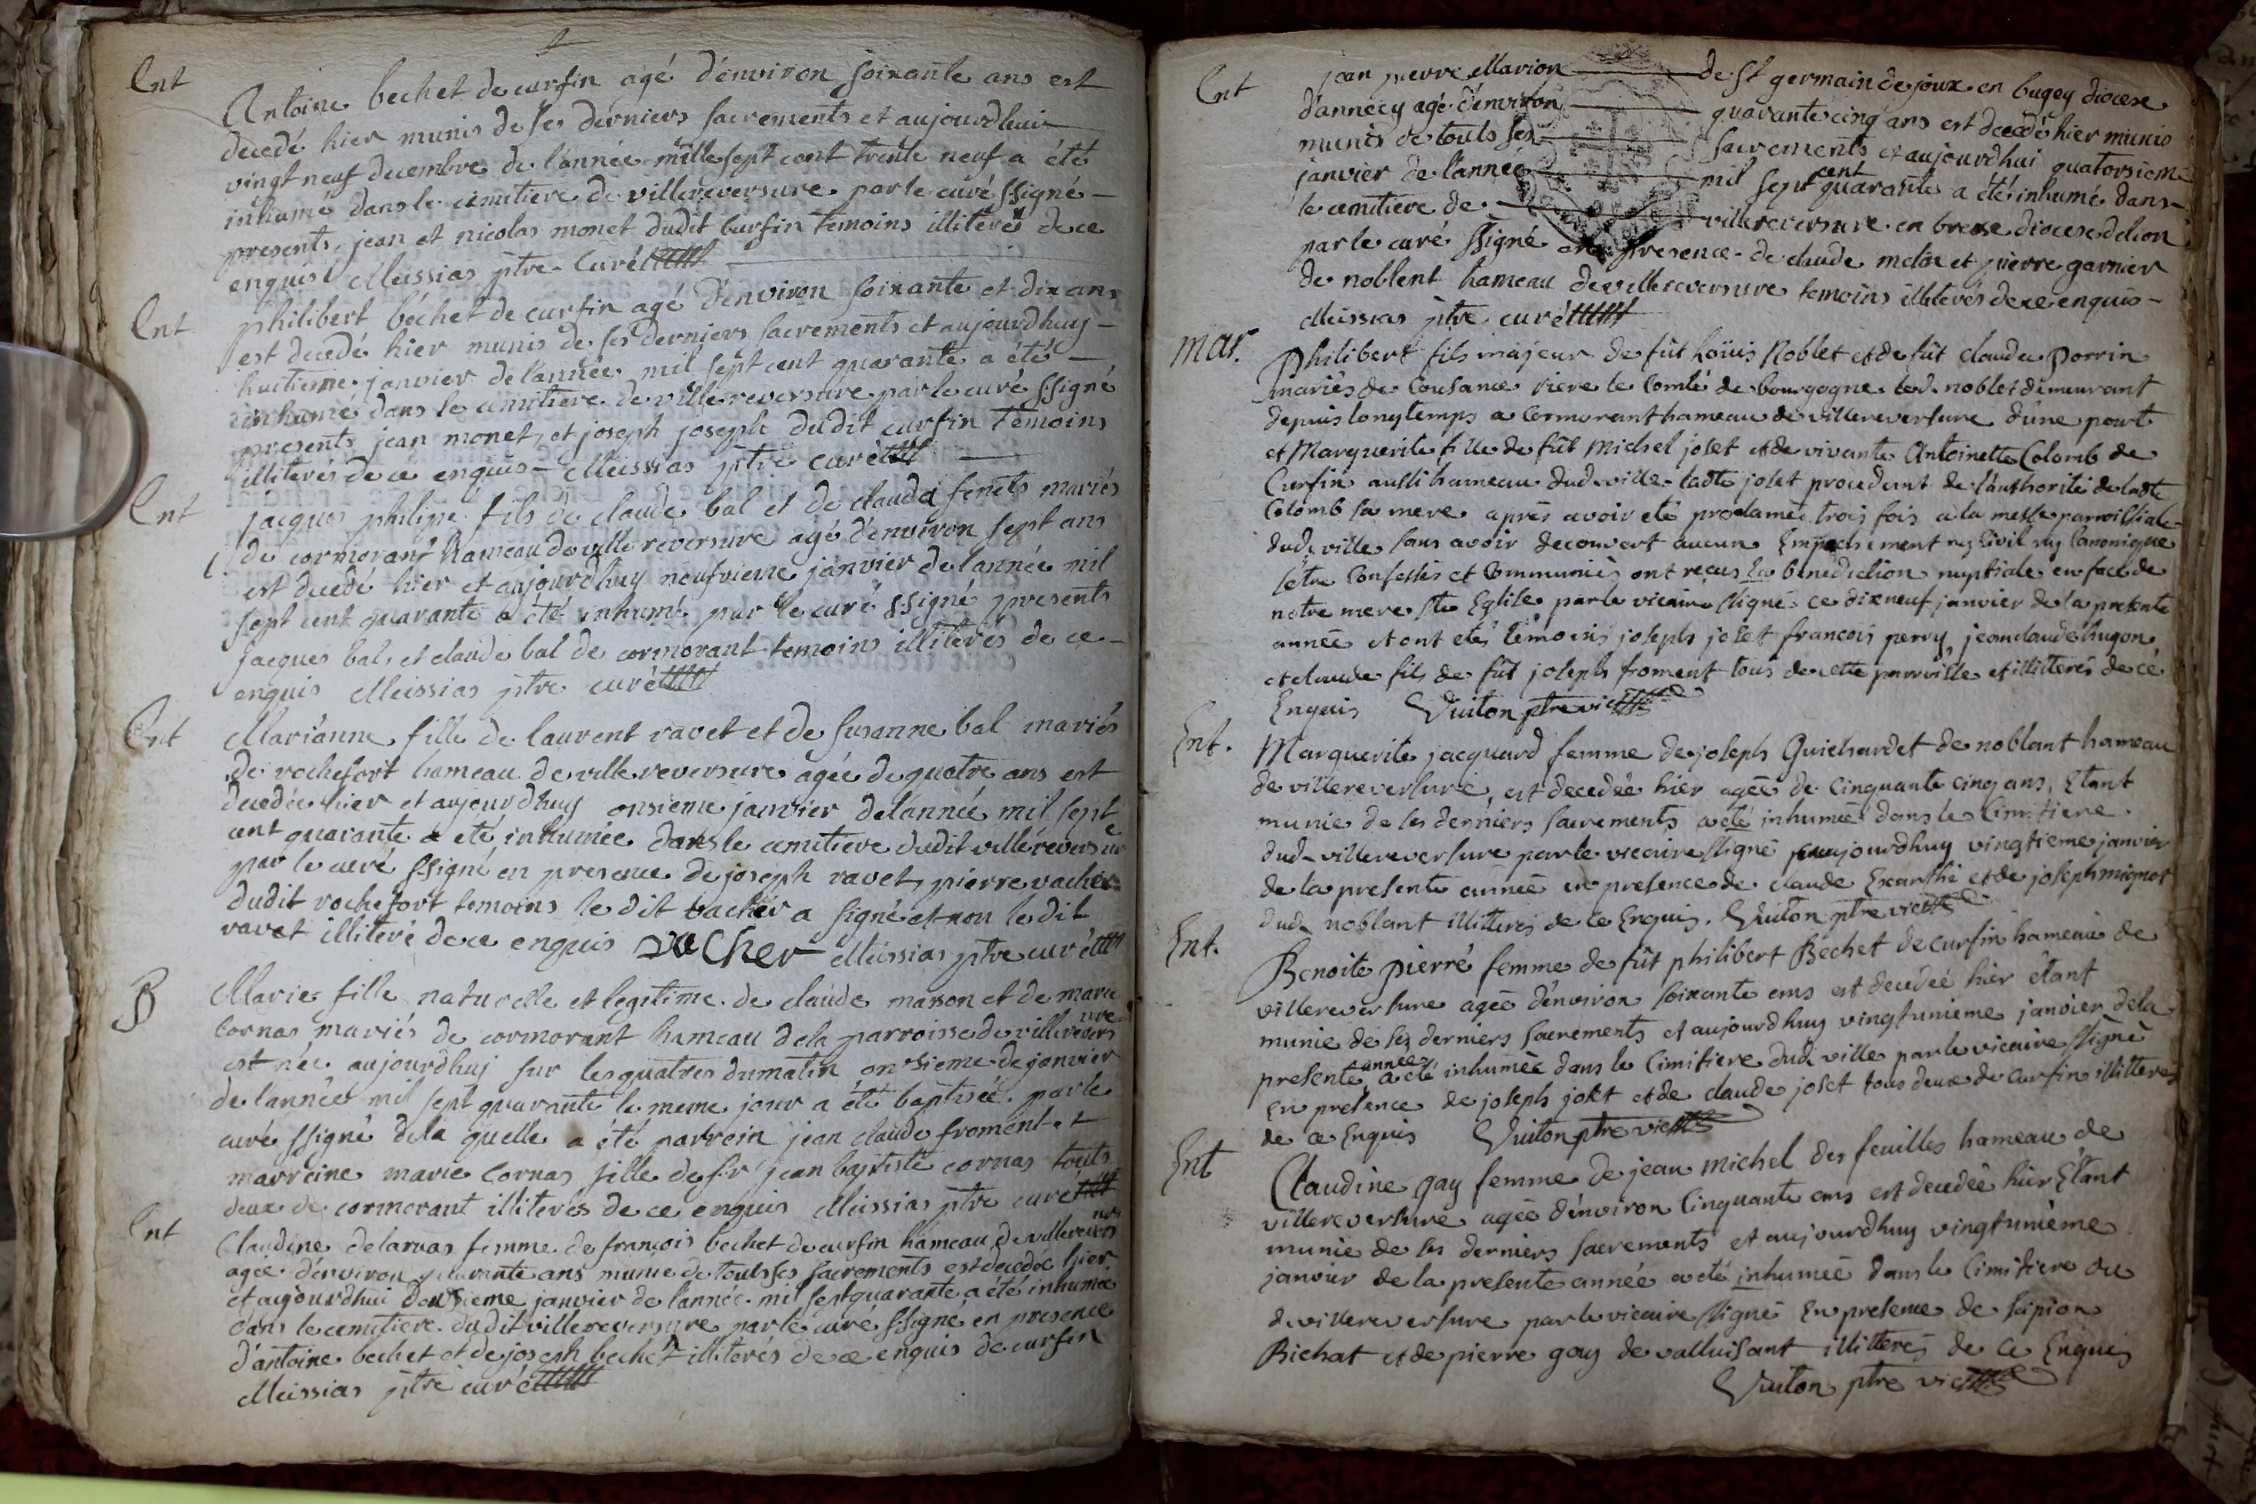 Ent
Antoine bechet de curfin agé d'environ soixante ans est
decedé hier munis de ses derniers sacrements et aujourdhui
vingt neuf decembre de l'année mille sept cent trente neuf a été
inhumé dans le cemitiere de villereversure par le curé ssigné
presents jean et nicolas monet dudit curfin temoins illiterés de ce
enquis Meissias ptre curé
Ent
philibert béchet de curfin agé d'environ soixante et dix ans
est decedé hier munis de ses derniers sacrements et aujourdhuy
huitieme janvier de l'année mil sept cent quarante a été
inhumé dans le cemitiere de villereversure par le curé ssigné
presents jean monet, et joseph joseph dudit curfin temoins
illiteres de ce enquis Meissias ptre curé
Ent
jacques philipe fils de claude bal et de claude ferrets mariés
de cormorant hameau de villereversure agé d'environ sept ans
est decedé hier et aujourdhuy neufvieme janvier de l'année mil
sept cent quarante a été inhumé par le curé ssigné presents
jacques bal, et claude bal de cormorant temoins illiterés de ce
enquis Meissias ptre curé
Ent
Marianne fille de laurent ravet et de susanne bal mariés
de rochefort hameau de villereversure agée de quatre ans est
decedée hier et aujourdhuy onsieme janvier de l'année mil sept
cent quarante a eté inhumée dans le cemitiere dudit villereversure
par le curé ssigné en presence de joseph ravet, pierre vacher
dudit rochefort temoins le dit vacher a signé et non le dit
ravet illiteré de ce enquis vacher Meissias ptre curé
B
Marie fille naturelle et legitime de claude masson et de marie
cornas mariés de cormorant hameau de la parroisse de villereversure
est née aujourdhuj sur les quatres du matin onsieme de janvier
de l'année mil sept quarante le meme jour a été baptisée par le
curé ssigné de la quelle a été parrein jean claude froment et
marreine marie cornas fille de sr jean baptiste cornas touts
deux de cormorant illiterés de ce enquis Meissias ptre curé
Ent
Claudine delaruas femme de françois bechet de curfin hameau de villereversure
agée d'environ quarante ans munie de touts ses sacrements est decedée hier
et aujourdhui dousieme janvier de l'année mil sept quarante a été inhumée
dans le cemitiere dudit villereversure par le curé ssigné en presence
d'antoine bechet et de joseph bechet illiterés de ce enquis de curfin
Meissias ptre curé
Ent
jean pierre Marion de st germain de joux en bugey diocese
d'annecy agé d'environ quarante cinq ans est decedé hier munis
munis de touts ses sacrements et aujourdhui quatorsieme
janvier de l'année mil sept cent quarante a été inhumé dans
le cemitiere de villereversure en bresse diocese de lion
par le curé ssigné en presence de claude et pierre garnier
de noblent hameau de villereversure temoins illiterés de ce enquis
Meissias ptre curé
Mar.
Philibert fils majeur de fût Loüis Noblet et de fût claude Perrin
mariés de Cousance riere le Comté de bourgogne led. noblet demeurant
depuis longtemps a Cormorant hameau de villereversure d'une part
et Marguerite fille de fût Michel jolet et de vivante Antoinette Colomb de
Curfin aussi hameau dud. ville ladte jolet procedant de l'authorité de ladte
Colomb sa mere après avoir eté proclamé trois fois a la messe parroissiale
dud. ville sans avoir decouvert aucun Empechement ny Civil ny Canonique
s'être Confessés et Communiés ont reçus la benediction nuptiale en face de
notre mere ste Eglise par le vicaire ssigné ce dixneuf janvier de la presente
année et ont etés témoins joseph jolet françois perry, jean claude hugon
et claude fils de fût joseph froment tous de cette parroisse et illitterés de cé
Enquis Vuiton ptre vic
Ent.
Marguerite jacquard femme de joseph Guichardet de noblant hameau
de villereversure, est decedée hier agée de Cinquante cinq ans, Etant
munie de ses derniers sacrements a eté inhumée dans le Cimitiere
dud. villereversure par le vicaire ssigné aujourdhuy vingtieme janvier
de la presente année en presence de claude et de joseph mignot
dud. noblant illitterés de ce Enquis. Vuiton ptre vic
Ent.
Benoite pierré femme de fût philibert Béchet de curfin hameau de
villereversure agée d'environ soixante ans est decedée hier étant
munie de ses derniers sacrements et aujourdhuy vingtunieme janvier de la
presente année a eté inhumée dans le Cimitiere dud. ville par le vicaire ssigné
En presence de joseph jolet et de claude jolet tous deux de Curfin illitteres
de ce Enquis Vuiton ptre vic
Ent
Claudine gay femme de jean michel des feuilles hameau de
villereversure agée d'environ Cinquante ans est decedée hier Etant
munie de ses derniers sacrements et aujourdhuy vingtunième
janvier de la presente année a eté inhumée dans le Cimitiere
de villereversure par le vicaire ssigné En presence de scipion
Bichat et de pierre gay de valluisant illitterés de Ce Enquis
Vuiton ptre vic